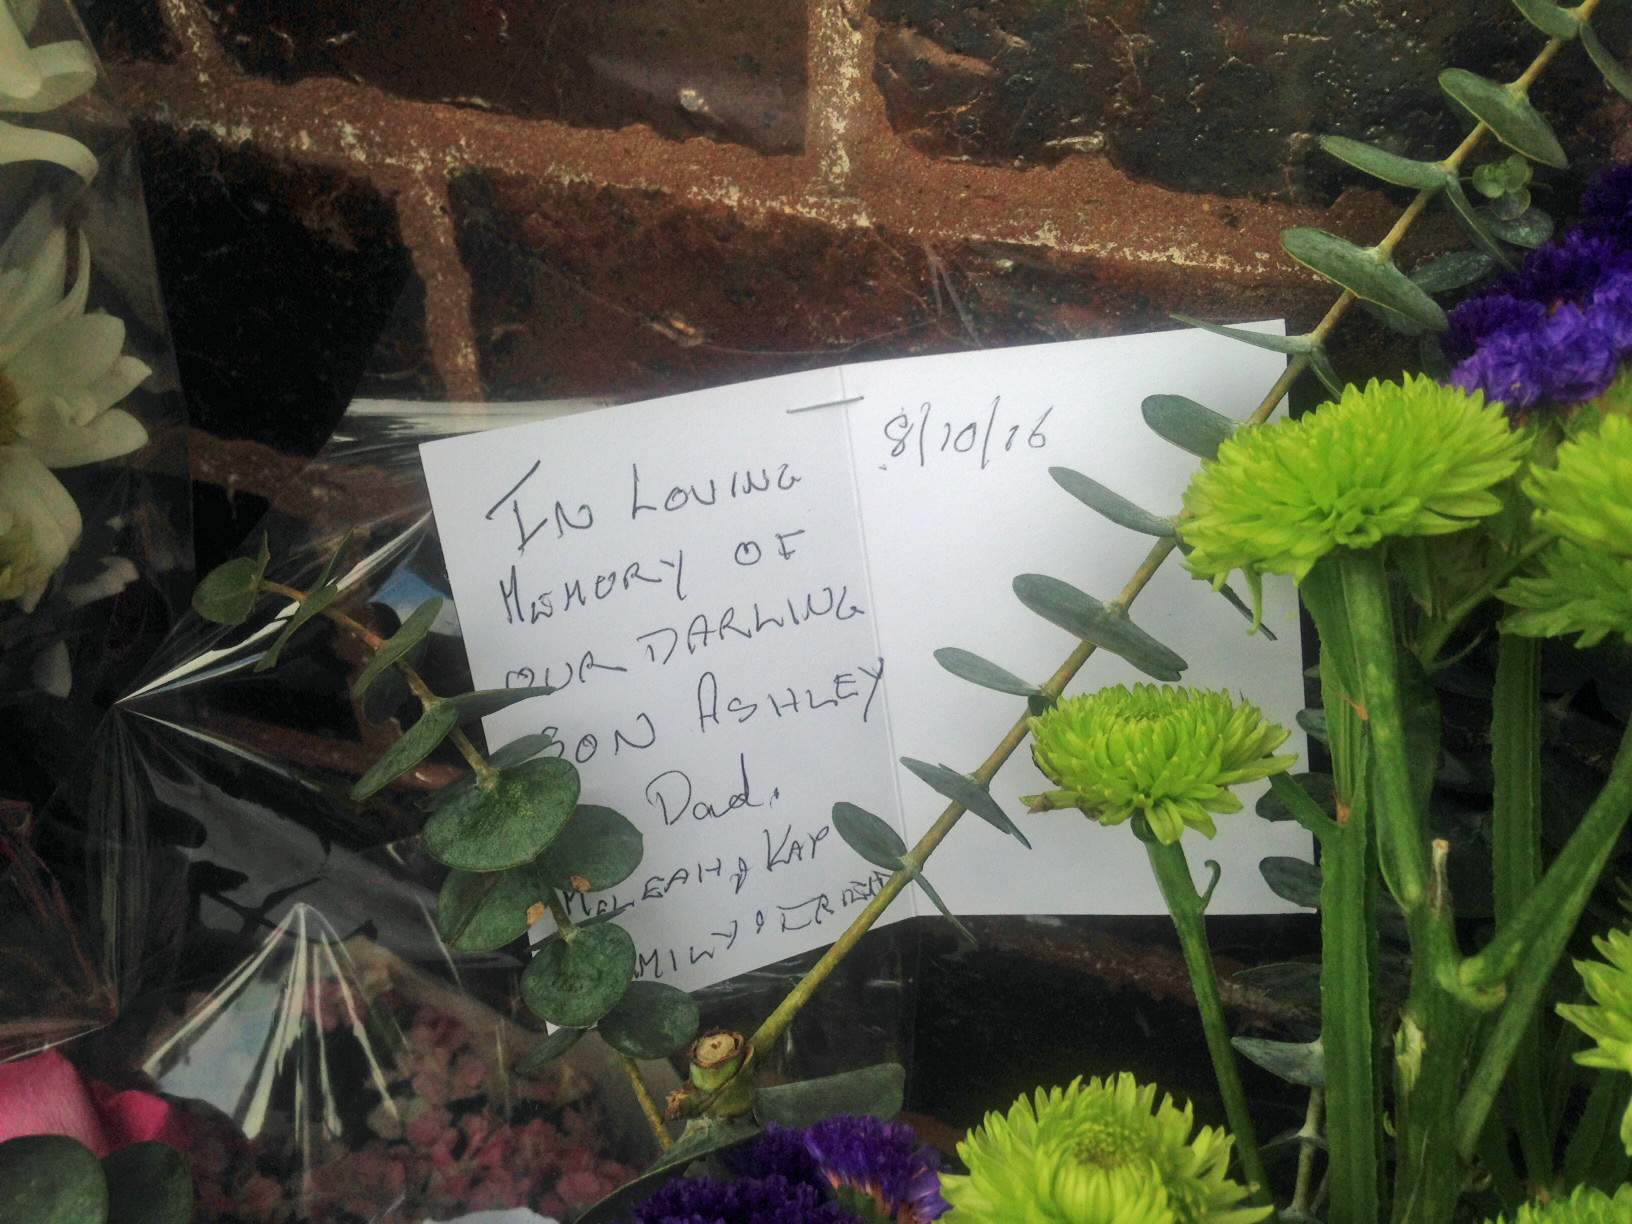 IN LOVING
MEMORY OF
OUR DARLING
SON ASHLEY
Dad.
KAY
8/10/16